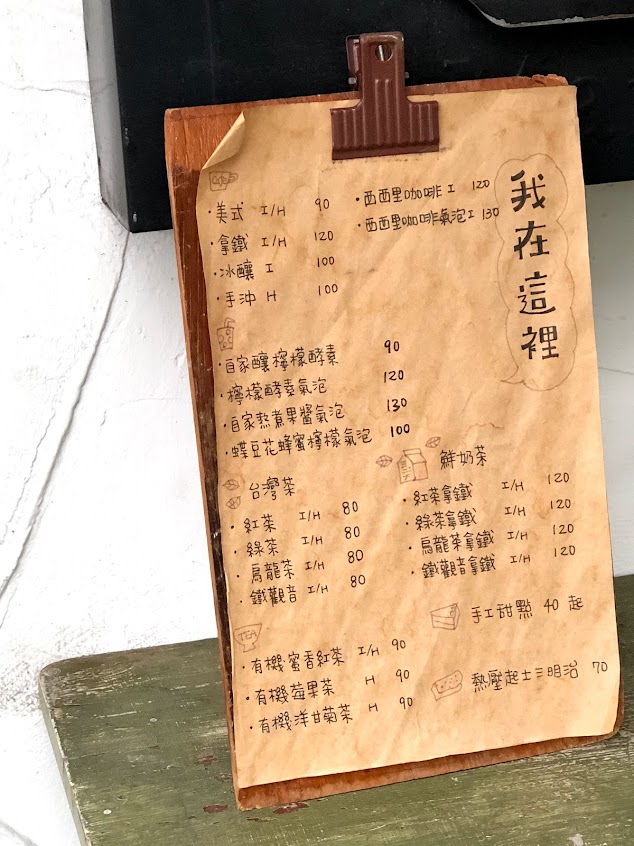 我在這裡
Cafe
・美式 I/H 90
・拿鐵 I/H 120
・冰釀 I 100
・手沖 H 100
・西西里咖啡 I 120
・西西里咖啡氣泡 I 130
・自家釀檸檬酵素 90
・檸檬酵素氣泡 120
・自家熬煮果醬氣泡 130
・蝶豆花蜂蜜檸檬氣泡 100
台灣茶
・紅茶 I/H 80
・綠茶 I/H 80
・烏龍茶 I/H 80
・鐵觀音 I/H 80
鮮奶茶
・紅茶拿鐵 I/H 120
・綠茶拿鐵 I/H 120
・烏龍茶拿鐵 I/H 120
・鐵觀音拿鐵 I/H 120
TEA
・有機蜜香紅茶 I/H 90
・有機莓果茶 H 90
・有機洋甘菊茶 H 90
手工甜點 40 起
熱壓起士三明治 70